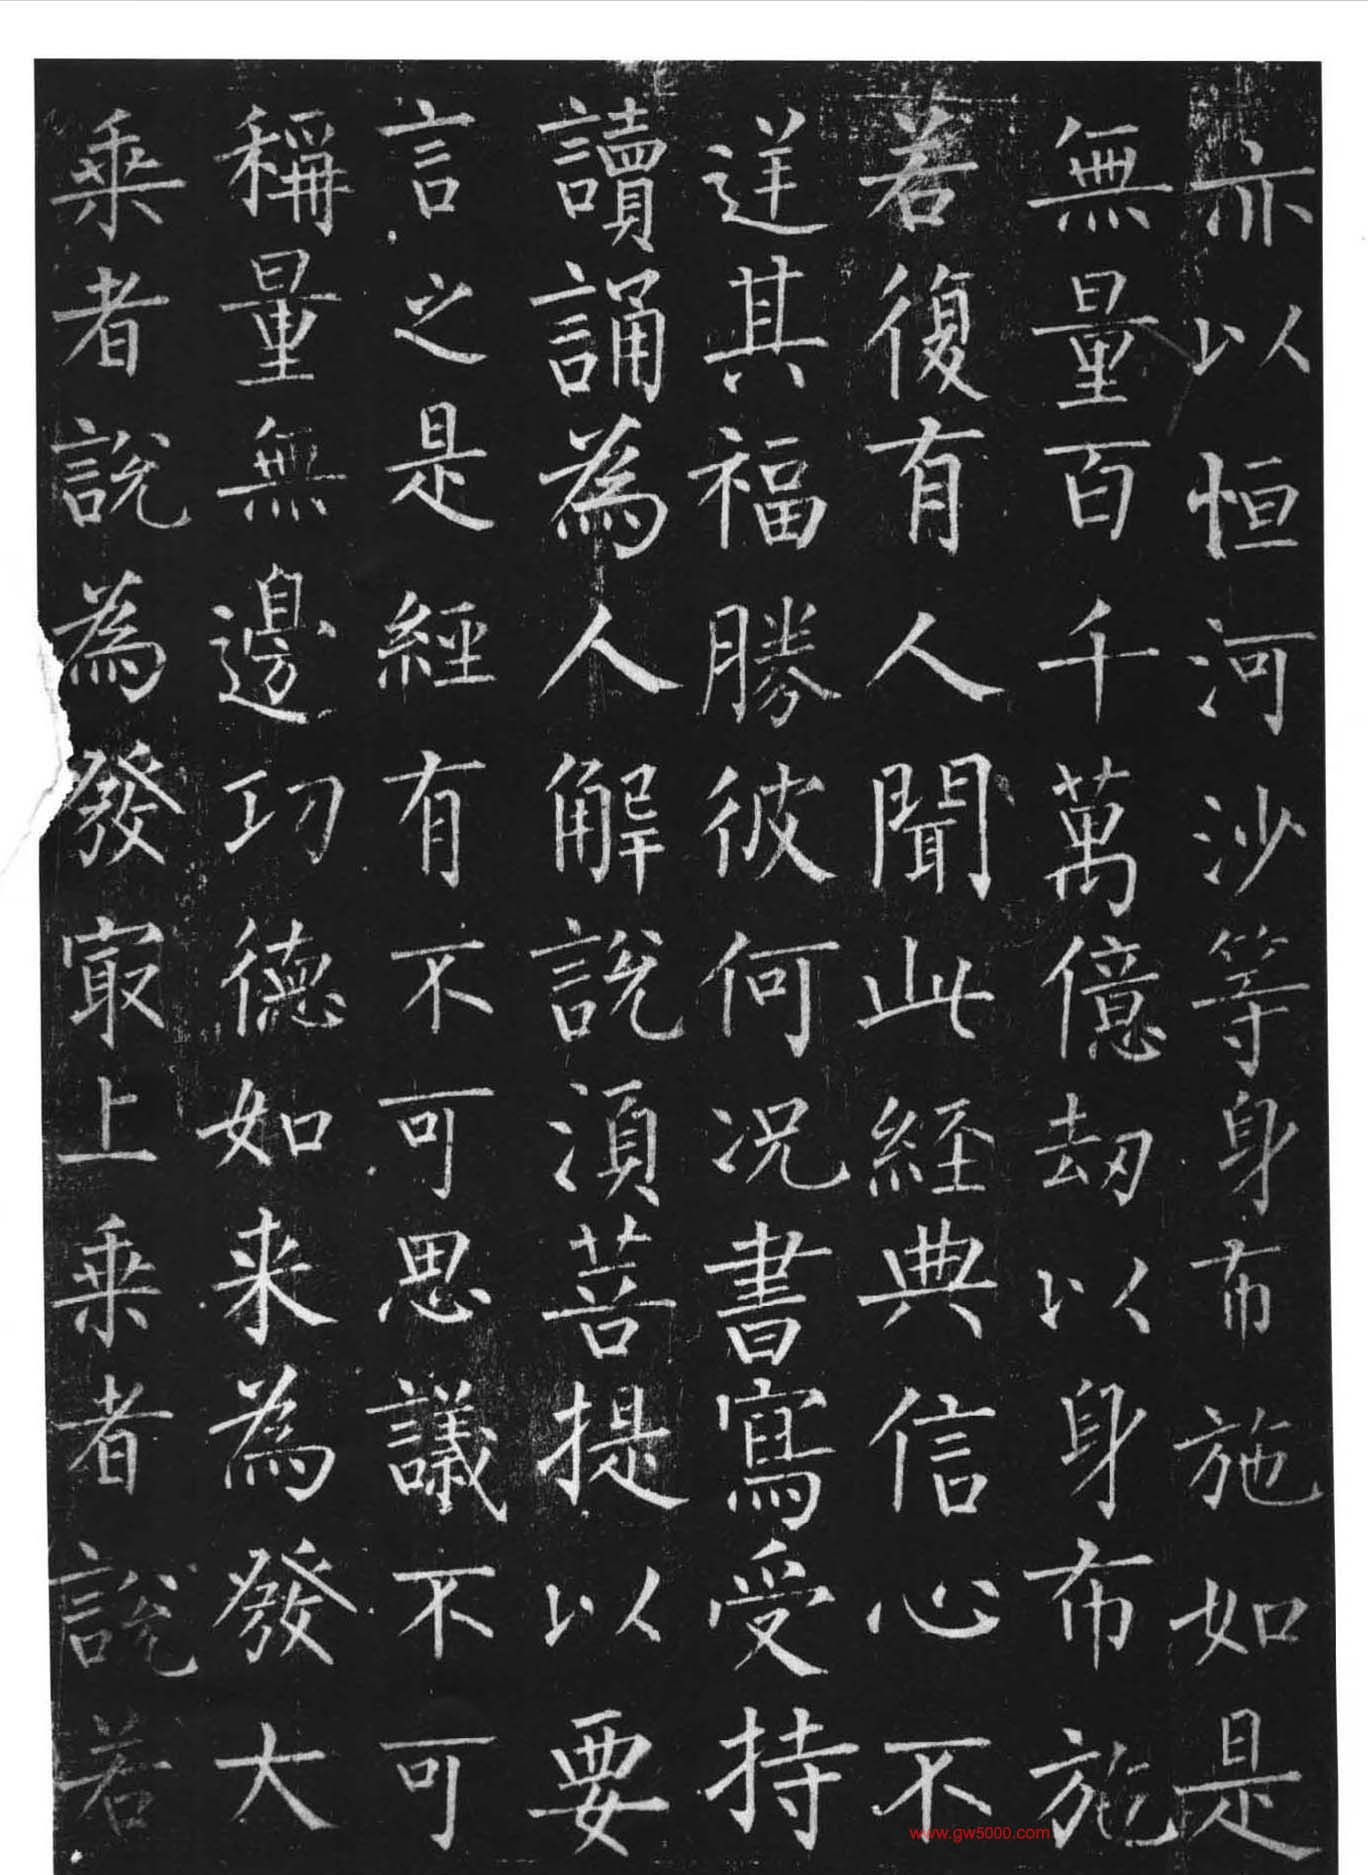 亦以恒河沙等身布施如是
無量百千萬億劫以身布施
若復有人聞此經典信心不
逆其福勝彼何况書寫受持
讀誦為人解說須菩提以要
言之是經有不可思議不可
稱量無邊功德如来為發大
乘者說為發冣上乘者說若
www.gw5000.com